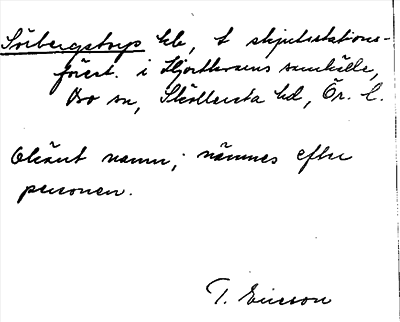 Sörbergstorp hle, f skjutsstations-
förest. i Hjortkvarns samhälle,
Bo sn, Sköllersta hd, Ör. l.
Okänt namn; nämnes efter
personen.
T. Ericson